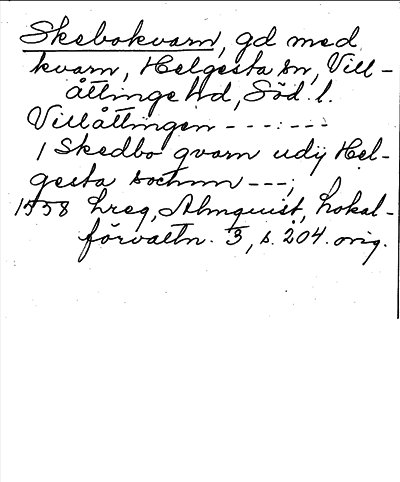 Skebokvarn, gd med
kvarn, Helgesta sn, Vill-
åttinge hd, Söd. l.
Villåttingen ---:---
1 Skedbo qvarn udij Hel-
gesta sochnn ---;
1558 hreg, Almquist, Lokal-
förvaltn. 3, s. 204. orig.